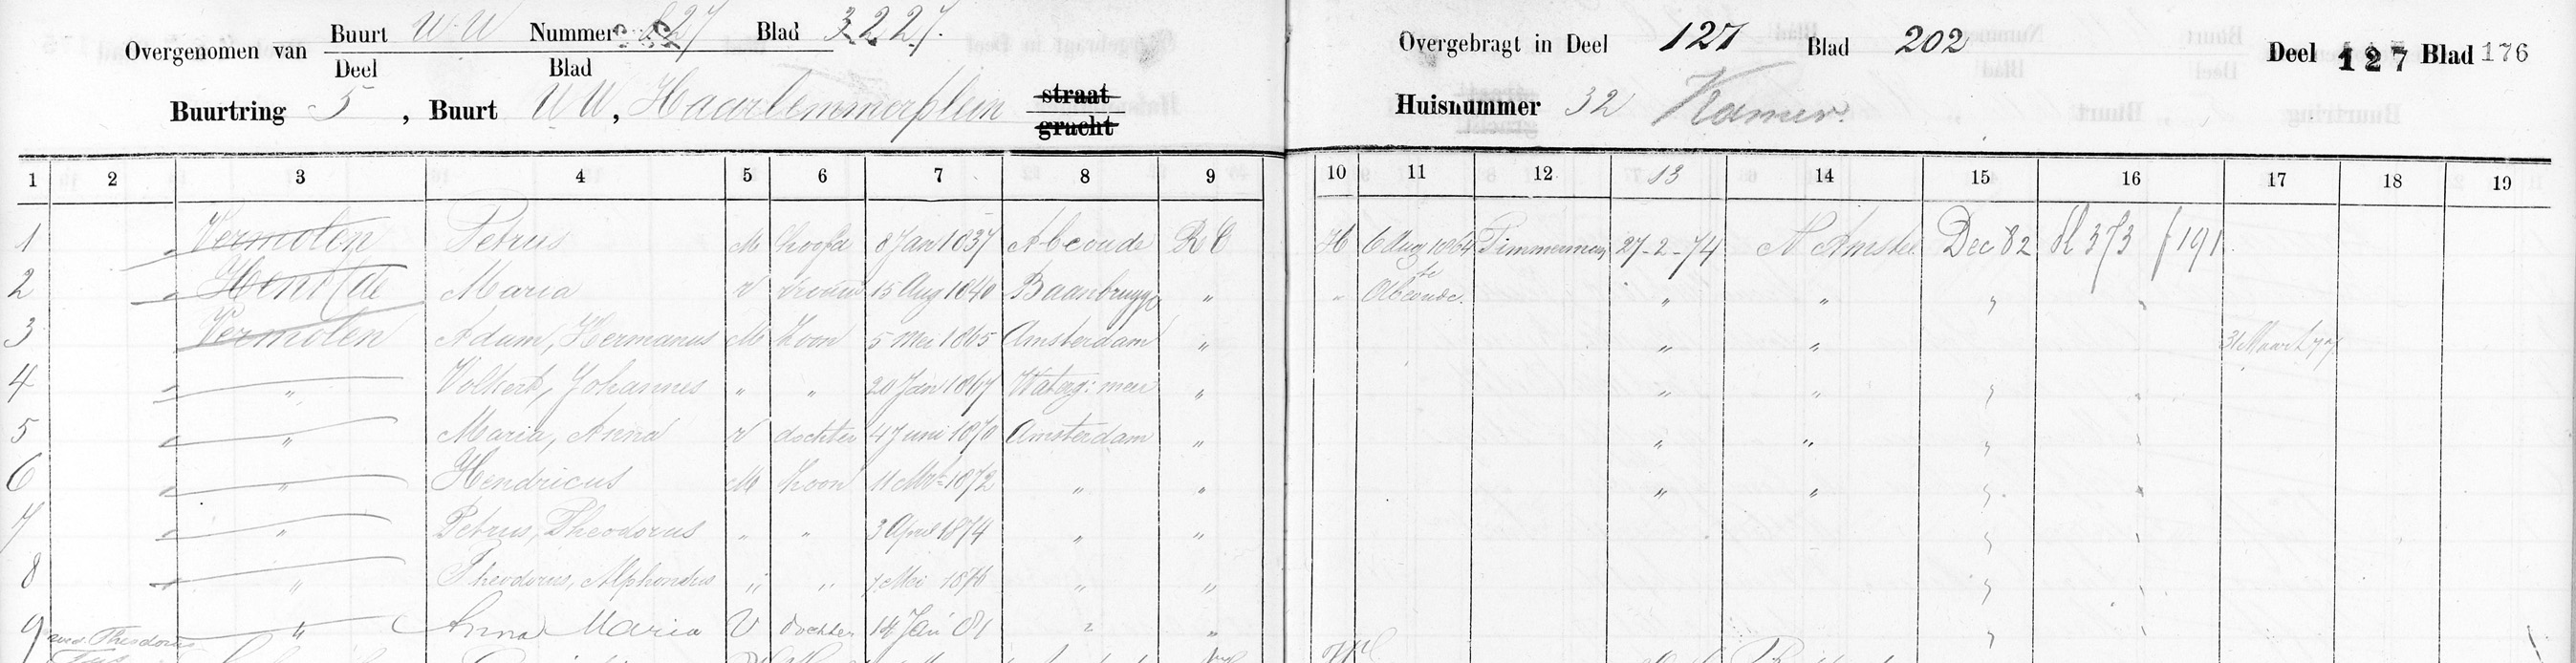 Overgenomen van Buurt WW Nummer 827 Blad 3227.
Deel Blad
Buurtring 5, Buurt WW, Haarlemmerplein straat gracht
Overgebragt in Deel 127 Blad 202
Deel 127 Blad 176
Huisnummer 32 Kamer.
1 2 3 4 5 6 7 8 9 10 11 12 13 14 15 16 17 18 19
1 Vermolen Petrus M hoofd 8 Jan 1837 Abcoude RC H 6 Aug 1864 Timmerman 27-2-74 N Amstel Dec 82 dl 373 f 191
2 Maria V vrouw 15 Aug 1840 Baambrugge " " te Abcoude. " " "
3 Vermolen Adam, Hermanus M Zoon 5 Mei 1865 Amsterdam " " " 31 Maart 77
4 " Volkert, Johannes " " 20 Jan 1867 Waterg: meer " " "
5 " Maria, Anna V dochter 4 Juni 1870 Amsterdam " " "
6 " Hendricus M Zoon 11 Mrt 1872 " " " "
7 " Petrus, Theodorus " " 3 April 1874 " "
8 " Theodorus, Alphonsus " " 1 Mei 1876 " "
9 " Anna Maria V dochter 14 Jan 81 " "
Theodorus